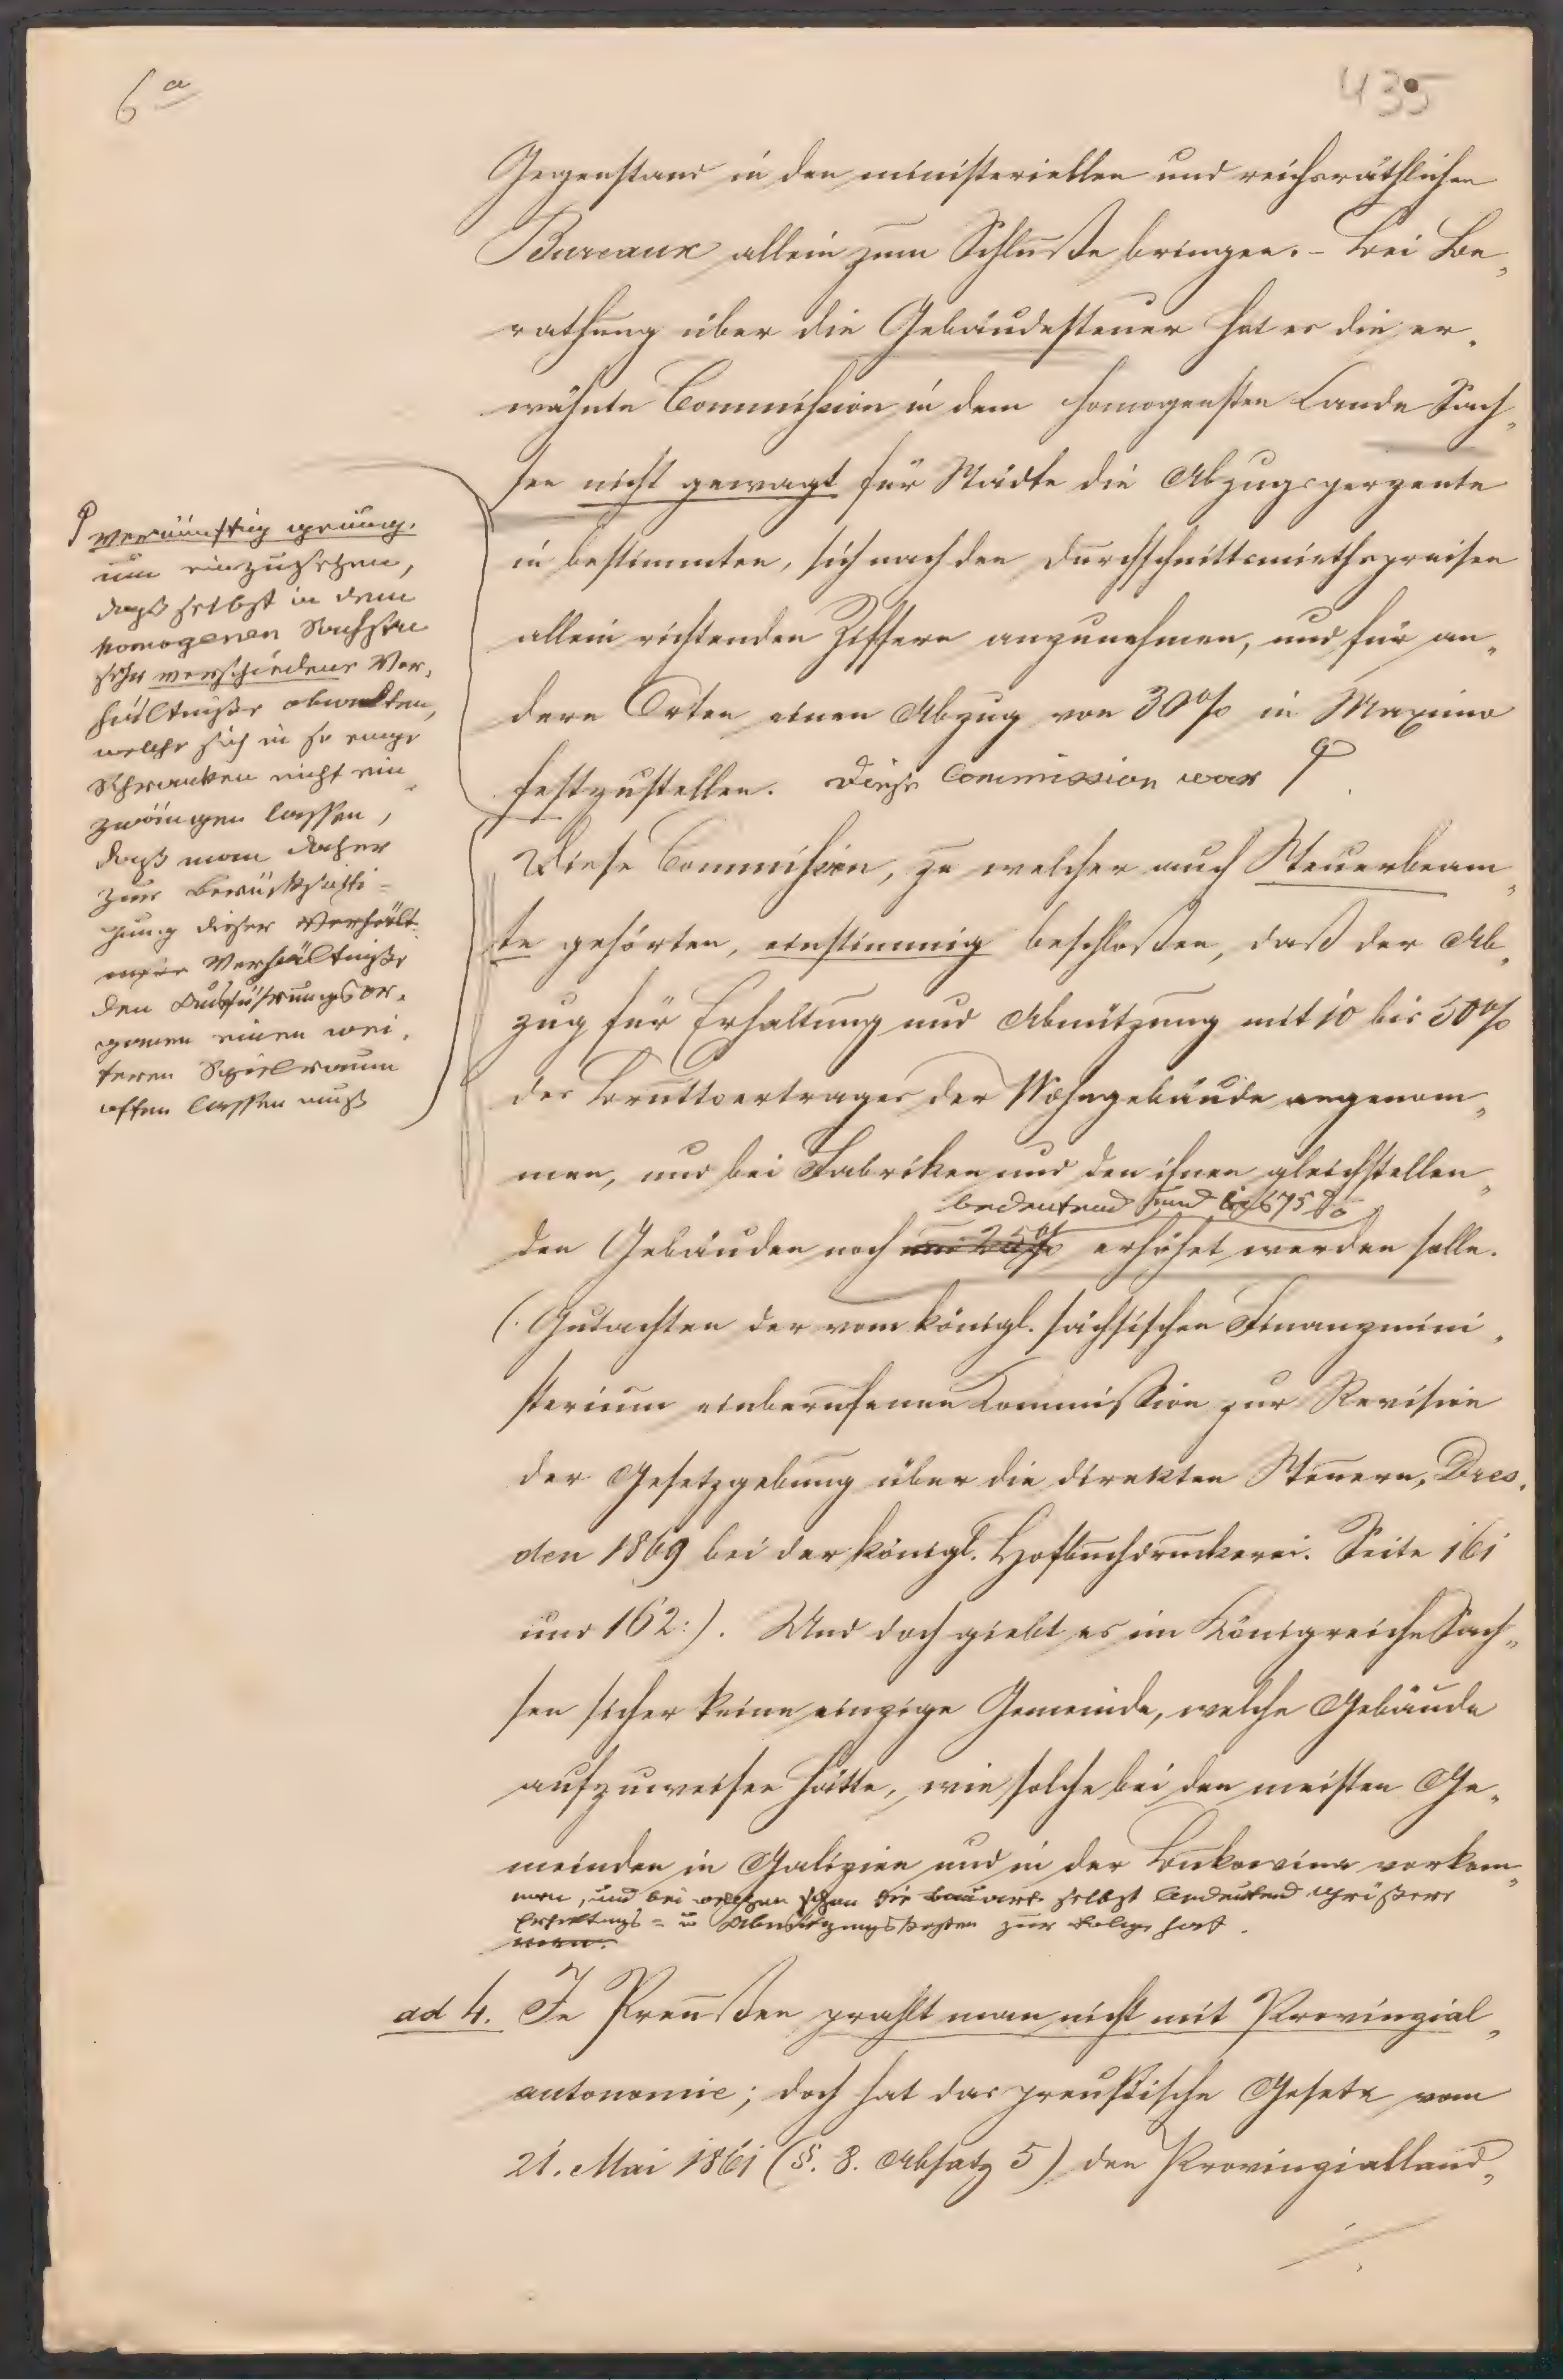 6a
435
Gegenstand in den ministeriellen und reichsräthlichen
Bureaux allein zum Schluße bringen. – Bei Be„
rathung über die Gebäudesteuer hat es die er„
wähnte Commission in dem homogensten Lande Sach„
sen nicht gewagt für Städte die Abzugsperzente
in bestimmten, sich nach den Durchschnittsmiethspreisen
allein richtenden Ziffern anzunehmen, und für an„
dere Orten einen Abzug von 30% in Maximo
festzustellen. Diese Commission war
vernünftig genug,
um einzusehen,
daß selbst in dem
homogenen Sachsen
sehr verschiedene Ver„
hältniße obwalten,
welche sich in so enge
Schranken nicht ein„
zwängen lassen,
daß man daher
zur Berücksichti=
gung dieser Verhält
niße Verhältniße
den Ausführungsor„
ganen einen wei„
teren Spielraum
offen lassen muß
Diese Commission, zu welcher auch Steuerbeam„
te gehörten, einstimmig beschloßen, daß der Ab„
zug für Erhaltung und Abnützung mit 10 bis 50%
des Bruttoertrages der Wohngebäude angenom„
men, und bei Fabriken und den ihnen gleichstellen„
bedeutend und bis 75%
den Gebäuden noch um 25% erhöhet werden solle.
(: Gutachten der vom königl. sächsischen Finanzmini„
sterium einberufenen Kommission zur Revision
der Gesetzgebung über die direkten Steuern, Dres„
den 1869 bei der königl. Hofbuchdruckerei. Seite 161
und 162:). Und doch giebt es im Königreiche Sach„
sen sicher keine einzige Gemeinde, welche Gebäude
aufzuweisen hätte, wie solche bei den meisten Ge„
meinden in Galizien und in der Bukowina vorkom„
men, und bei welchen schon die Bauart selbst bedeutend größere
Erhaltungs= u Abnützungskosten zur Folge hat.
men.
ad 4. In Preußen prahlt man nicht mit Provinzial„
autonomie; doch hat das preußische Gesetz vom
21. Mai 1861 (§. 8. Absatz 5) den Provinzialland„